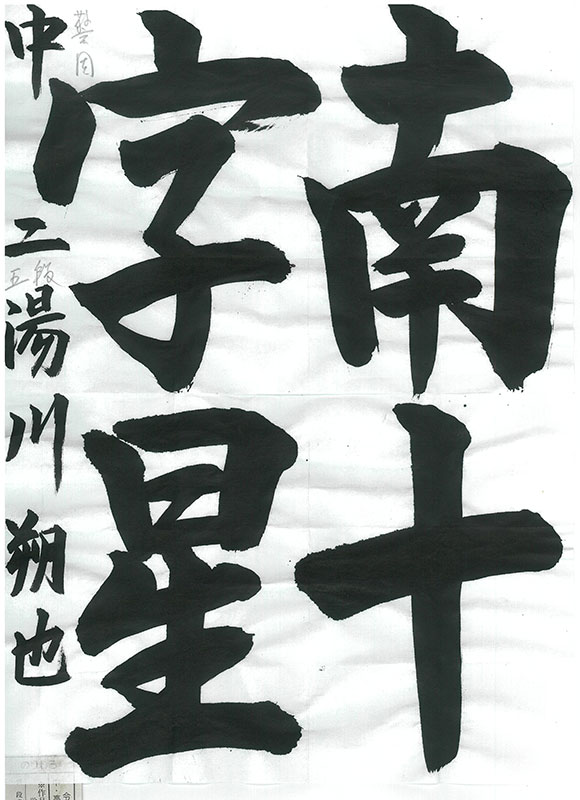 南十
字星
中二 湯川朔也
五級